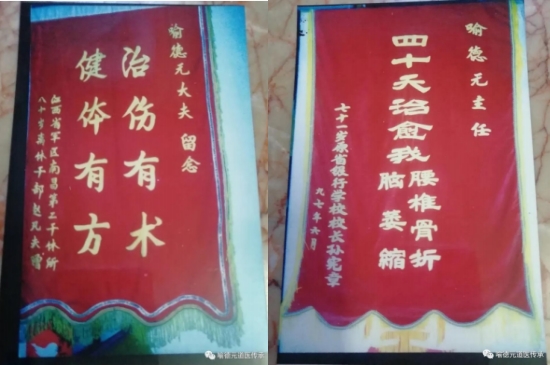 喻德元大夫 留念
治伤有术
健体有方
江西省军区南昌第二干休所
八十岁离休干部赵凡夫赠
喻德元道医传承
喻德元主任
四十天治愈我腰椎骨折
脑萎缩
七十一岁原省银行学校校长孙宪章
九七年六月
喻德元道医传承